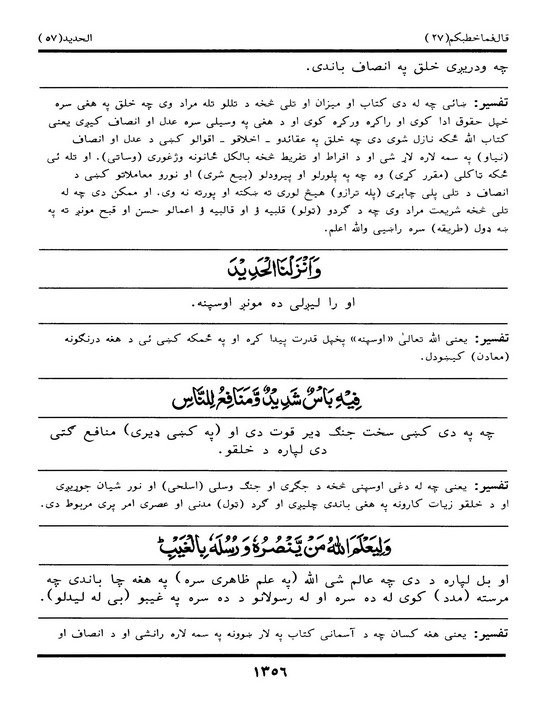 قال فما خطبکم (۲۷)
الحدید (۵۷)
چه ودریږی خلق په انصاف باندی.
تفسیر: ښائی چه له دی کتاب او میزان او تلی څخه د تللو تله مراد وی چه خلق په هغی سره
خپل حقوق ادا کوی او راکړه ورکړه کوی او د هغی په وسیلی سره عدل او انصاف کیږی یعنی
کتاب الله ځکه نازل شوی دی چه خلق په عقائدو ـ اخلاقو ـ اقوالو کښی د عدل او انصاف
(نیاو) په سمه لاره لاړ شی او د افراط او تفریط څخه بالکل ځانونه وژغوری (وساتی). او تله ئی
ځکه تاکلی (مقرر کړی) وه چه په پلورلو او پیرودلو (بیع شری) او نورو معاملاتو کښی د
انصاف د تلی پلی چابری (پله ترازو) هیڅ لوری ته ښکته او پورته نه وی. او ممکن دی چه له
تلی څخه شریعت مراد وی چه د گردو (ټولو) قلبیه ؤ او قالبیه ؤ اعمالو حسن او قبح مونږ ته په
ښه ډول (طریقه) سره راښیی والله اعلم.
وَاَنْزَلْنَا الْحَدِیْدَ
او را لیږلی ده مونږ اوسپنه.
تفسیر: یعنی الله تعالیٰ «اوسپنه» پخپل قدرت پیدا کړه او په ځمکه کښی ئی د هغه درنگونه
(معادن) کیښودل.
فِیْهِ بَاْسٌ شَدِیْدٌ وَّمَنَافِعُ لِلنَّاسِ
چه په دی کښی سخت جنگ ډیر قوت دی او (په کښی ډیری) منافع گټی
دی لپاره د خلقو.
تفسیر: یعنی چه له دغی اوسپنی څخه د جگړی او جنگ وسلی (اسلحی) او نور شیان جوړیږی
او د خلقو زیات کارونه په هغی باندی چلیږی او گرد (ټول) مدنی او عصری امر پری مربوط دی.
وَلِیَعْلَمَ اللّٰهُ مَنْ یَّنْصُرُهٗ وَرُسُلَهٗ بِالْغَیْبِؕ
او بل لپاره د دی چه عالم شی الله (په علم ظاهری سره) په هغه چا باندی چه
مرسته (مدد) کوی له ده سره او له رسولانو د ده سره په غیبو (بی له لیدلو).
تفسیر: یعنی هغه کسان چه د آسمانی کتاب په لار ښوونه په سمه لاره رانشی او د انصاف او
۱۳۵۶